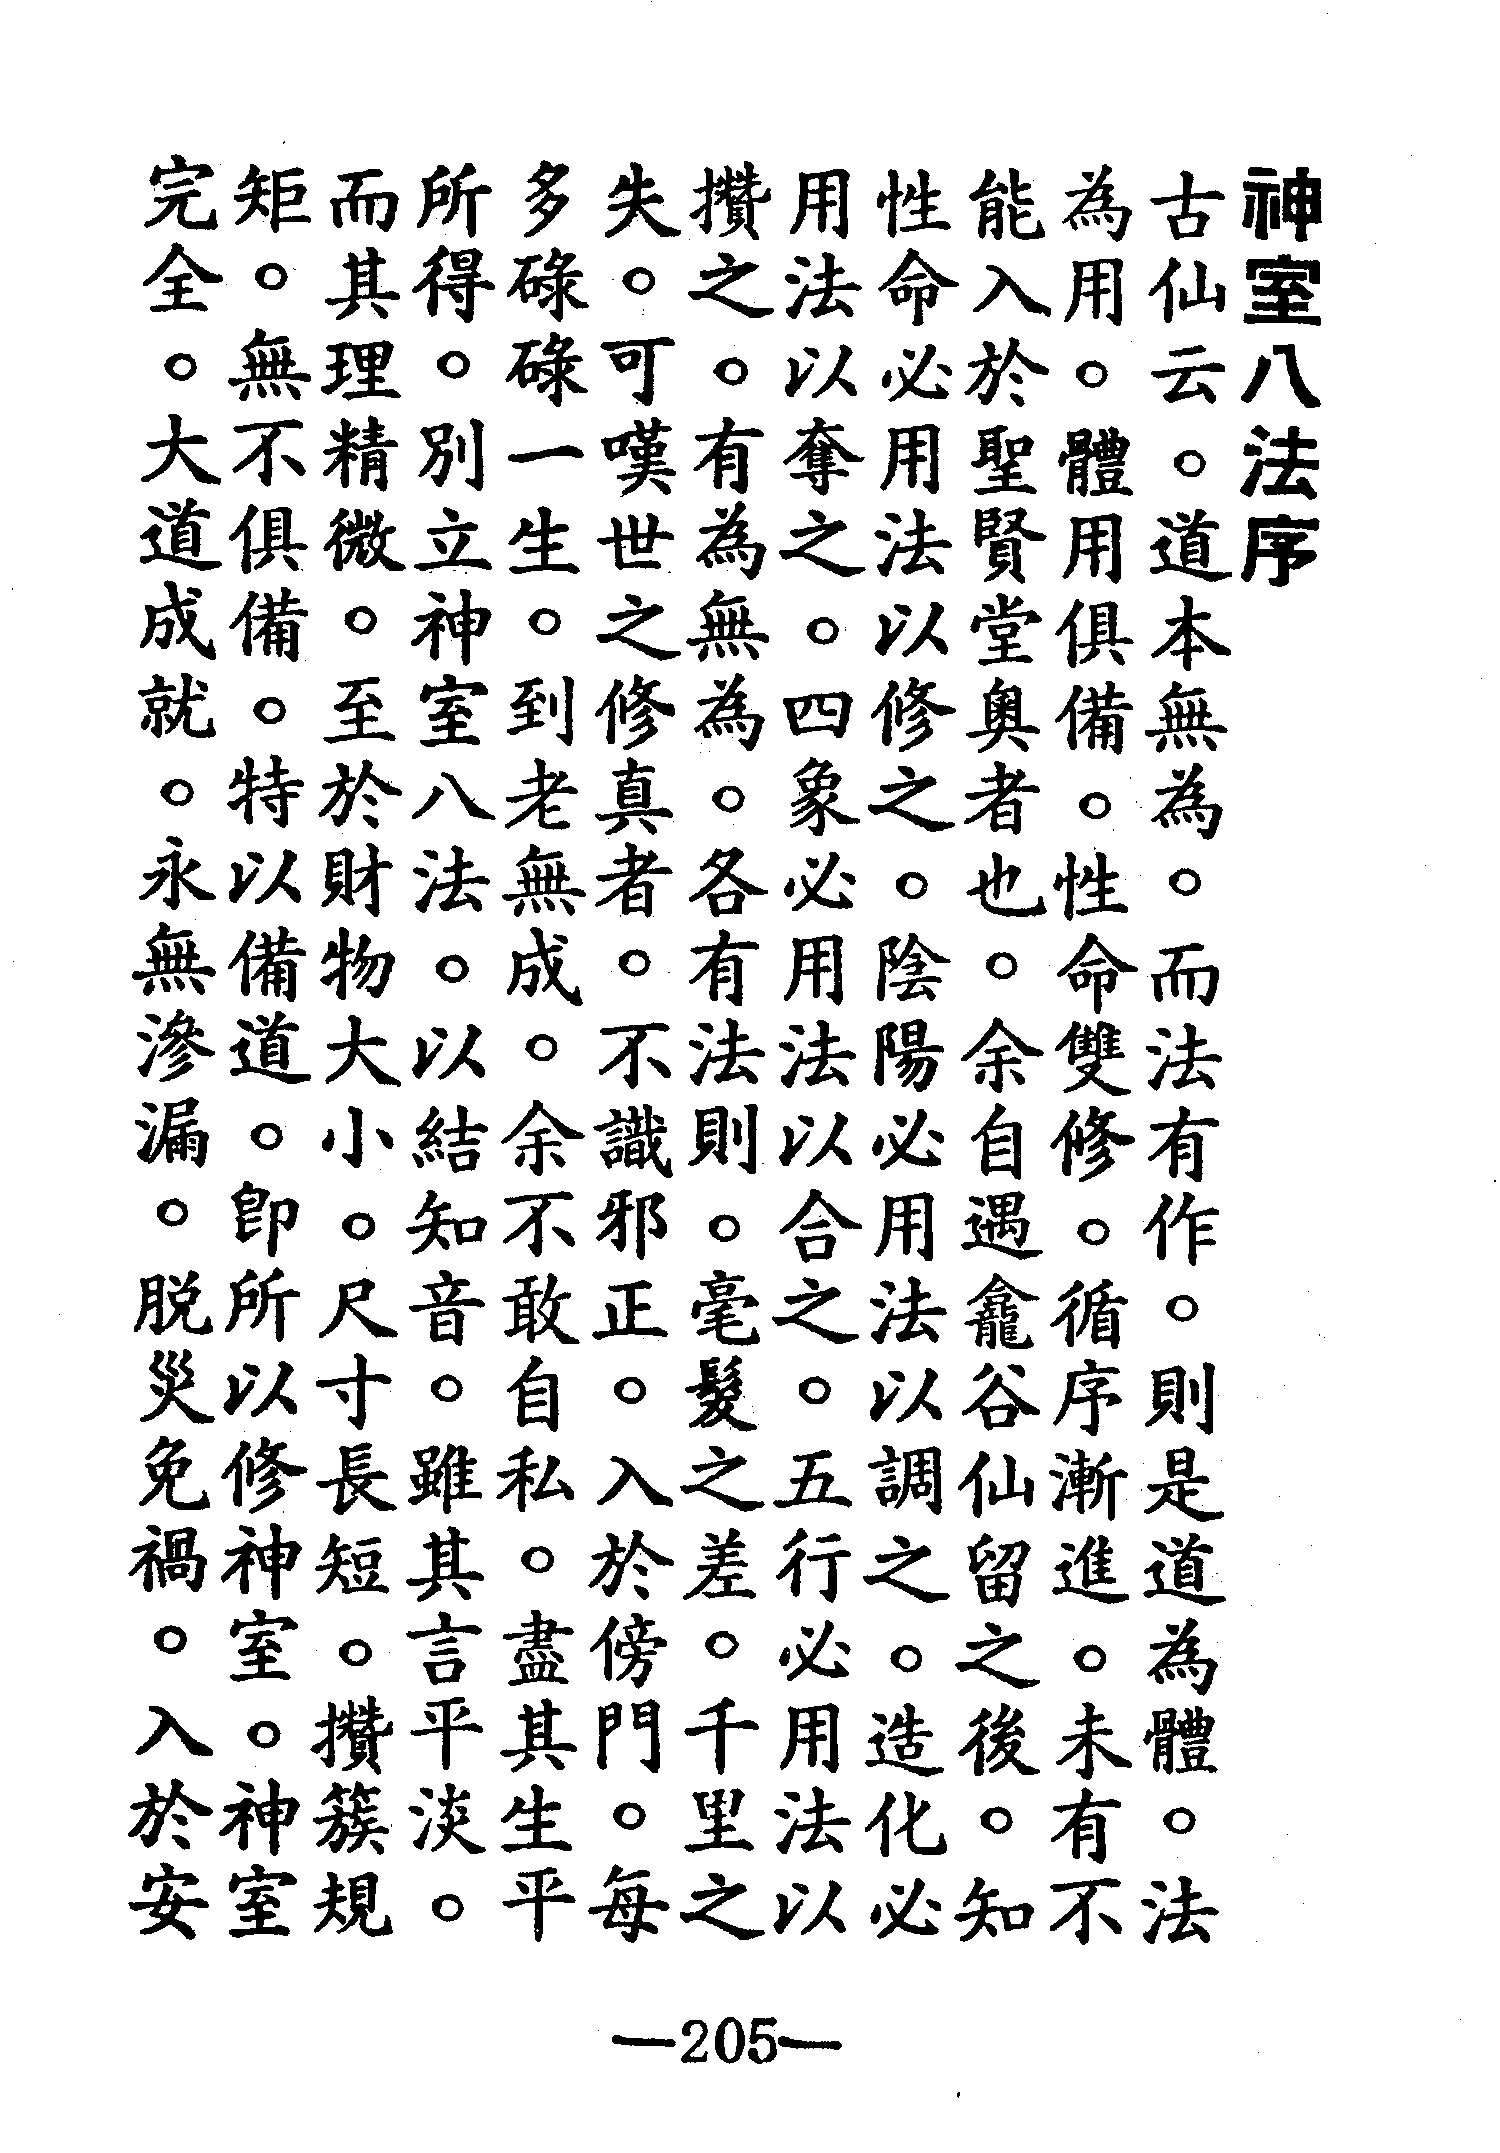 神室八法序
古仙云。道本無為。而法有作。則是道為體。法
為用。體用俱備。性命雙修。循序漸進。未有不
能入於聖賢堂奧者也。余自遇龕谷仙留之後。知
性命必用法以修之。陰陽必用法以調之。造化必
用法以奪之。四象必用法以合之。五行必用法以
攢之。有為無為。各有法則。毫髮之差。千里之
失。可嘆世之修真者。不識邪正。入於傍門。每
多碌碌一生。到老無成。余不敢自私。盡其生平
所得。別立神室八法。以結知音。雖其言平淡。
而其理精微。至於財物大小。尺寸長短。攢簇規
矩。無不俱備。特以備道。即所以修神室。神室
完全。大道成就。永無滲漏。脱災免禍。入於安
—205—